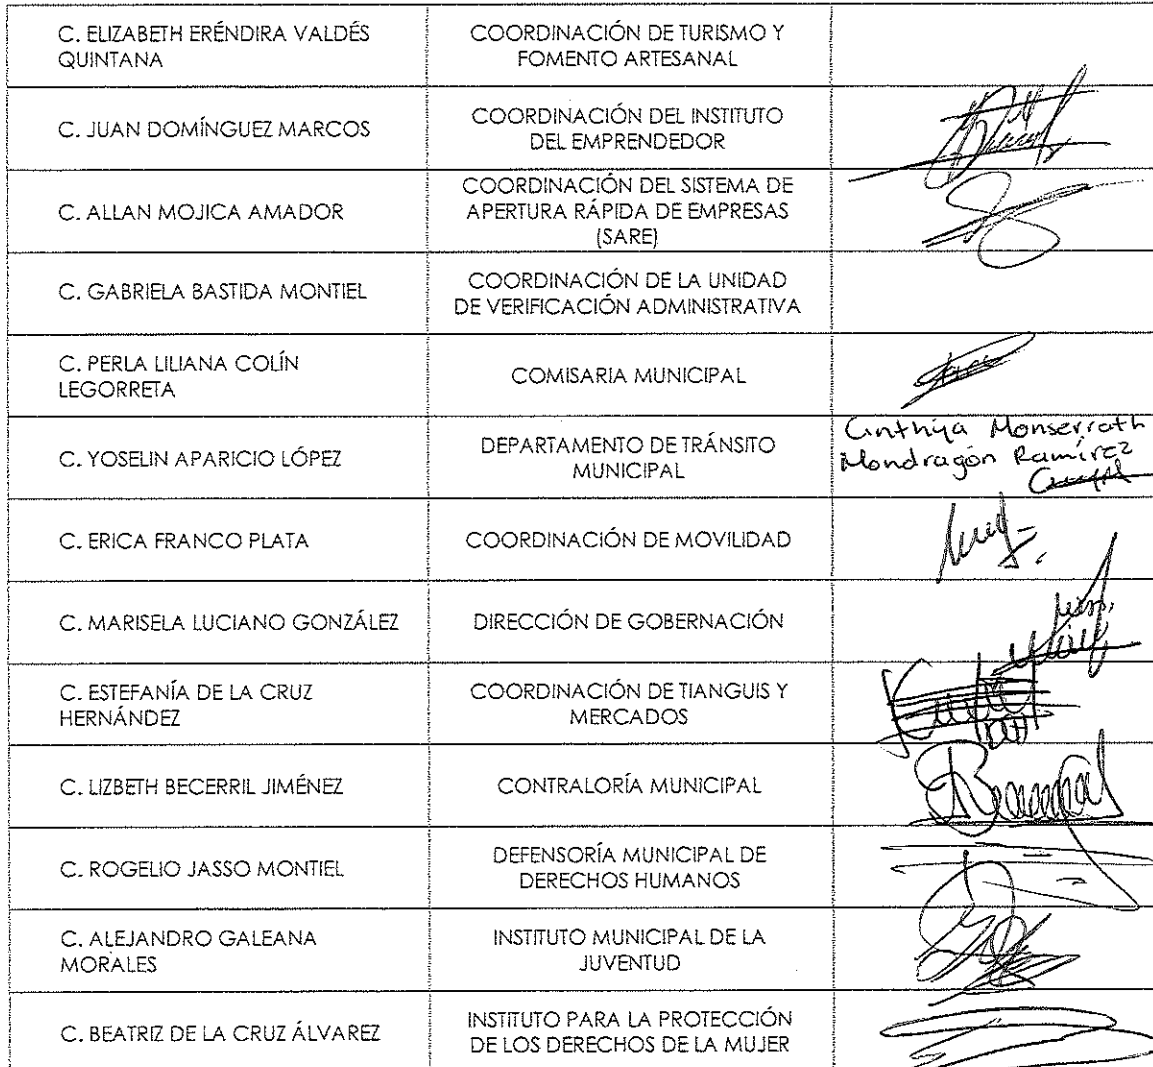 C. ELIZABETH ERÉNDIRA VALDÉS
QUINTANA
COORDINACIÓN DE TURISMO Y
FOMENTO ARTESANAL
C. JUAN DOMÍNGUEZ MARCOS
COORDINACIÓN DEL INSTITUTO
DEL EMPRENDEDOR
C. ALLAN MOJICA AMADOR
COORDINACIÓN DEL SISTEMA DE
APERTURA RÁPIDA DE EMPRESAS
(SARE)
C. GABRIELA BASTIDA MONTIEL
COORDINACIÓN DE LA UNIDAD
DE VERIFICACIÓN ADMINISTRATIVA
C. PERLA LILIANA COLÍN
LEGORRETA
COMISARIA MUNICIPAL
C. YOSELIN APARICIO LÓPEZ
DEPARTAMENTO DE TRÁNSITO
MUNICIPAL
Cinthya Monserrath
Mondragón Ramírez
C. ERICA FRANCO PLATA
COORDINACIÓN DE MOVILIDAD
C. MARISELA LUCIANO GONZÁLEZ
DIRECCIÓN DE GOBERNACIÓN
C. ESTEFANÍA DE LA CRUZ
HERNÁNDEZ
COORDINACIÓN DE TIANGUIS Y
MERCADOS
C. LIZBETH BECERRIL JIMÉNEZ
CONTRALORÍA MUNICIPAL
C. ROGELIO JASSO MONTIEL
DEFENSORÍA MUNICIPAL DE
DERECHOS HUMANOS
C. ALEJANDRO GALEANA
MORALES
INSTITUTO MUNICIPAL DE LA
JUVENTUD
C. BEATRIZ DE LA CRUZ ÁLVAREZ
INSTITUTO PARA LA PROTECCIÓN
DE LOS DERECHOS DE LA MUJER